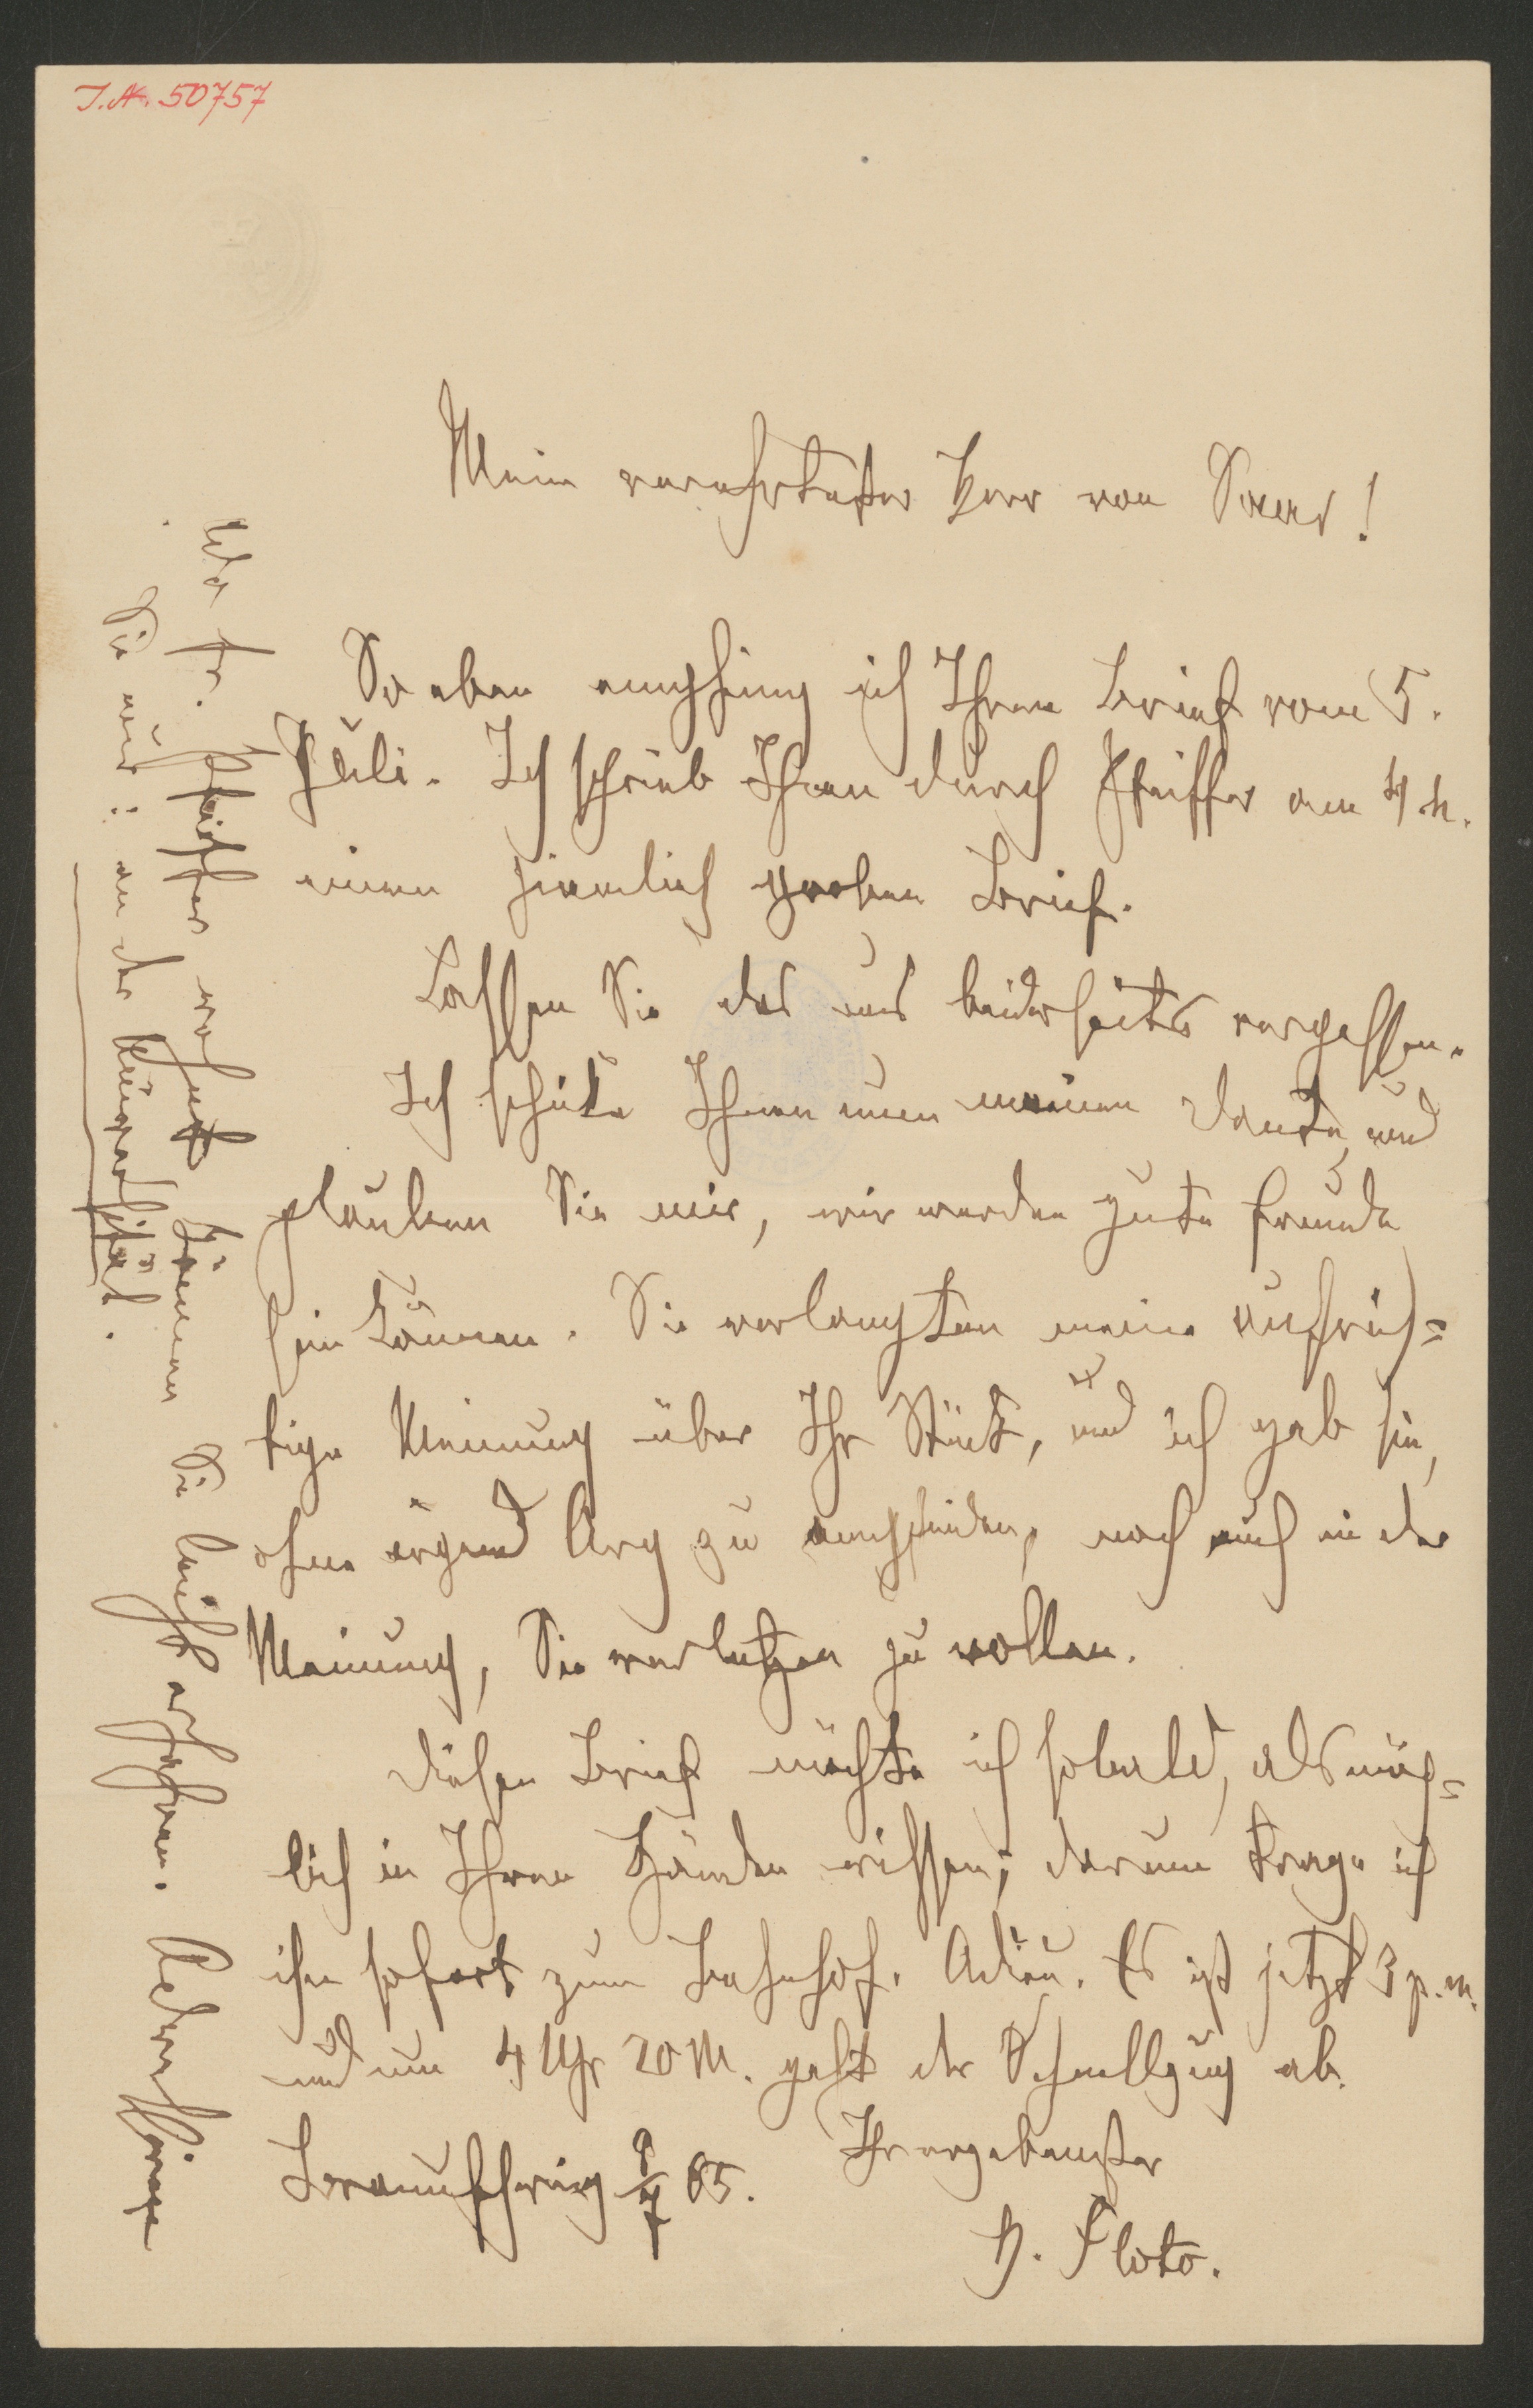 I.N. 50757
Mein verehrtester Herr von Saar!
So eben empfing ich Ihren Brief vom 5.
Juli. Ich schrieb Ihnen durch Pfeiffer am 4 h.
einen ziemlich groben Brief.
Lassen Sie das uns beiderseits vergessen.
Ich schüttle Ihnen nun meinen Dank, und
glauben Sie mir, wir werden gute Freunde
sein können. Sie verlangten meine aufrich=
tige Meinung über Ihr Stück, und ich gab sie,
ohne irgend Arg zu empfinden, noch auch in der
Meinung, Sie verletzen zu wollen.
Diesen Brief möchte ich sobald, als mög=
lich in Ihren Händen wissen; darum trage ich
ihn sofort zum Bahnhof. Adieu. Es ist jetzt 3 p. m.
und um 4 Uhr 20 M. geht der Schnellzug ab.
Ihr ergebenster
Braunschweig 9/7 65.
H. Floto.
Wo Fr. Pfeiffer wohnt können Sie leicht erfahren.
Sie wird: an der